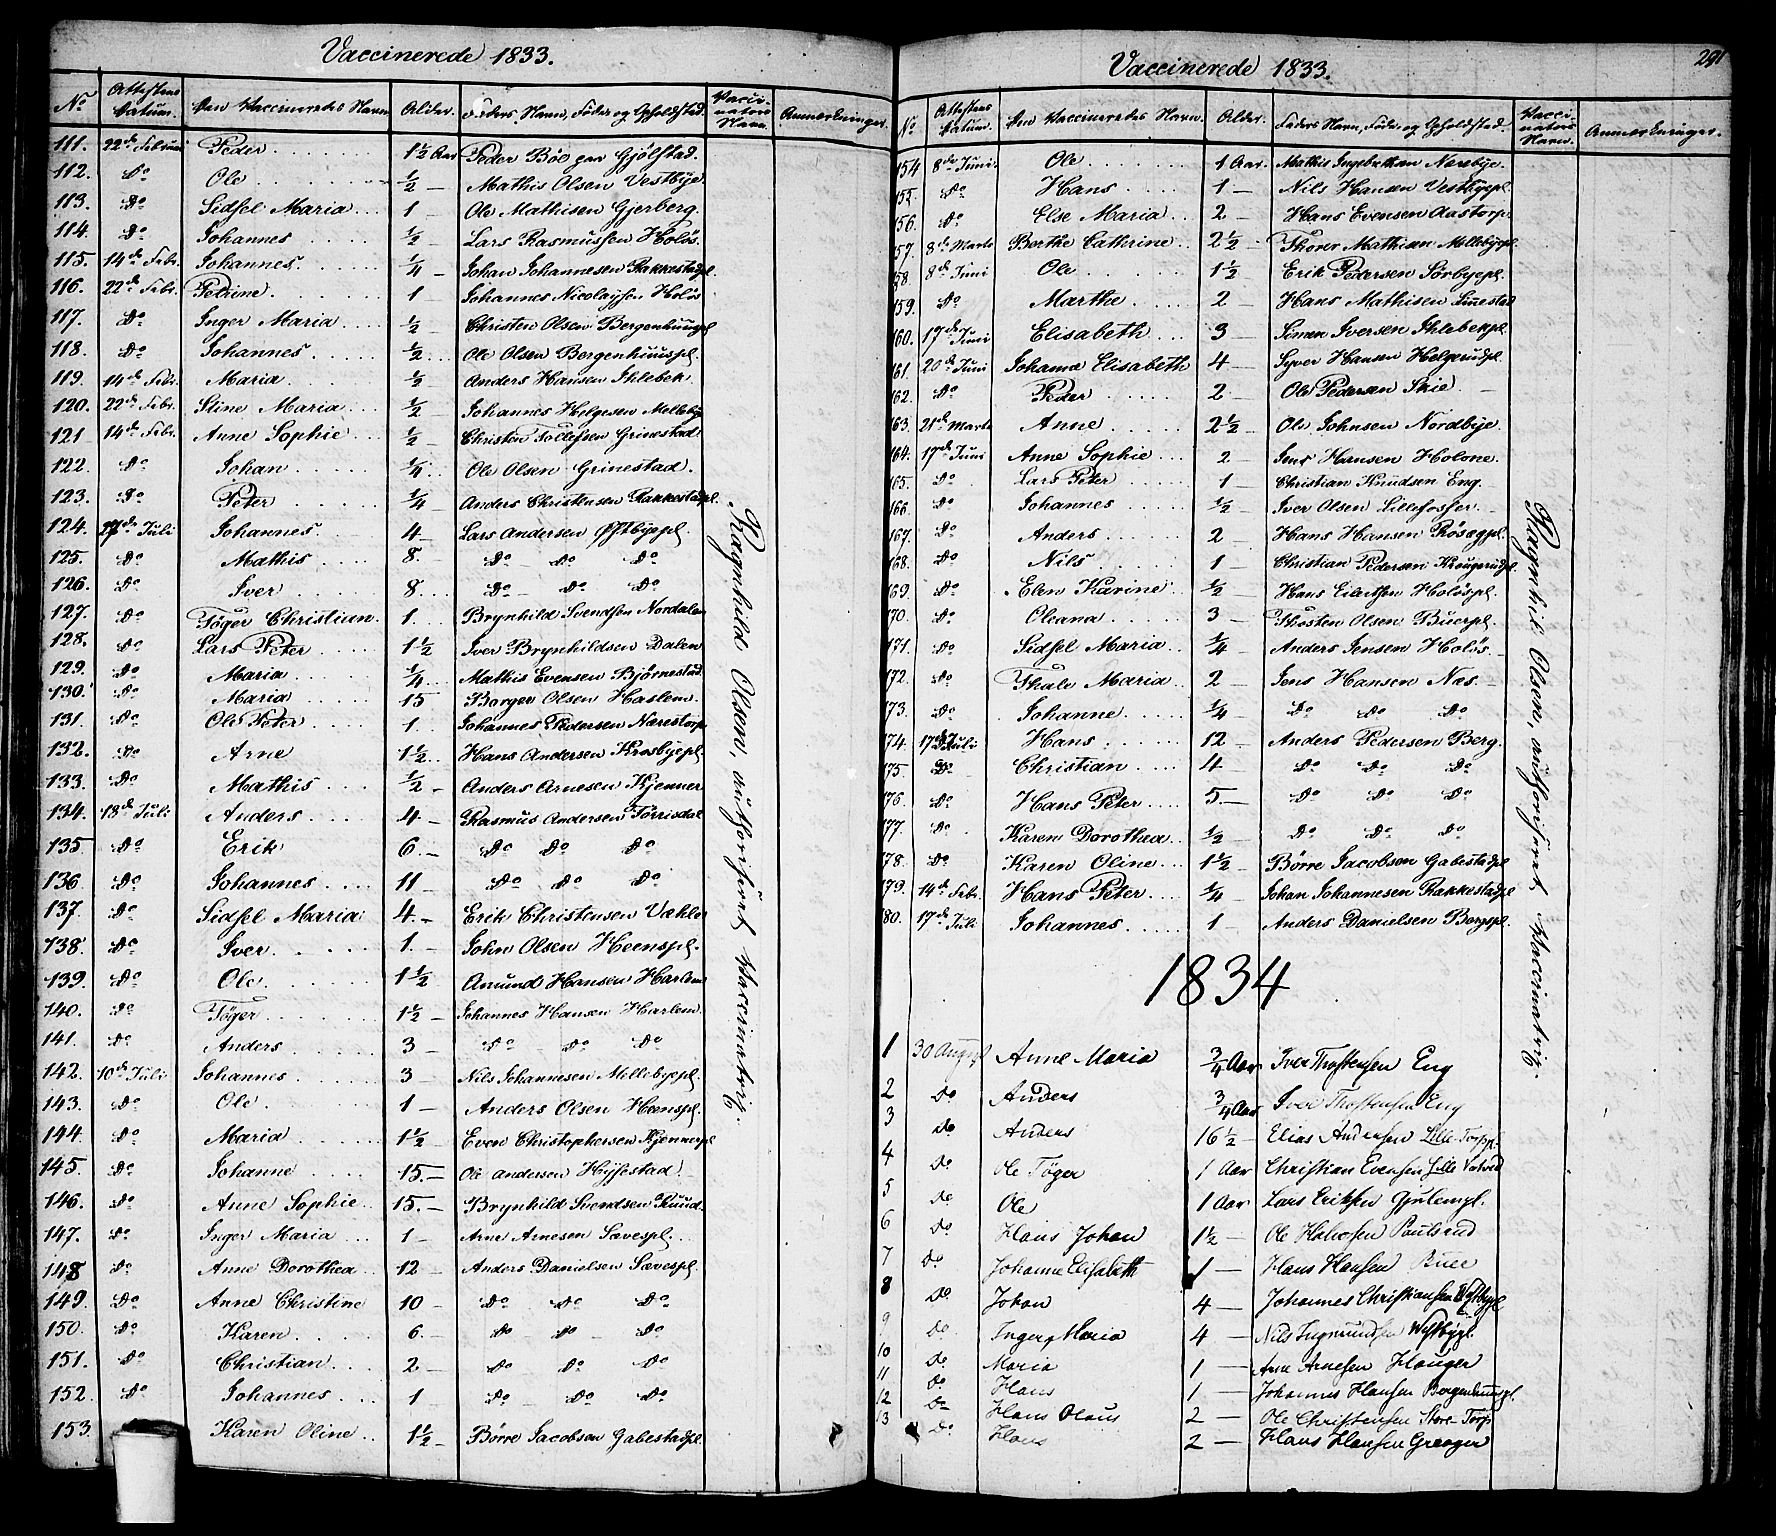 Vaccinerede 1833.
No Attestens Datum. Den Vaccineredes Navn Alder. Faders Navn, Föder og Opholdsted. Vacci-natores Navn. Anmærkninger.
111. 22de Februar Peder 1 1/2 Aar Peder Böe paa Gjölstad.
112. Do Ole 1/2 — Mathis Olsen Vestbÿe.
113. Do Sidsel Maria 1 — Ole Mathisen Gjerberg.
114. Do Johannes 1/2 — Lars Rasmussen Holös.
115. 14de Febr. Johannes 1/4 — Johan Johannesen Rakkestadpl.
116. 22de Febr. Petrine 1 Johannes Nicolaysen Holös
117. Do Inger Maria 1/2 — Christen Olsen Bergenhuuspl
118. Do Johannes 1/2 Ole Olsen Bergenhuuspl.
119. 14de Febr. Maria 1/2 — Anders Hansen Ihlebek
120. 22de Febr. Stine Maria 1/2 — Johannes Helgesen Mellebÿe
121 14de Febr. Anne Sophie 1/2 — Christen Tollefsen Grinestad
122. Do Johan 1/4 Ole Olsen Grinestad.
123. Do Peter 1/4 Anders Christensen Rakkestadpl.
124. 27de Juli Johannes 4 — Lars Andersen Østbÿepl.
125. Do Mathis 8. — Do Do Do
126. Do Iver 8. Do Do Do
127. Do Töger Christian. 1. Brynhild Svendsen Nordalen
128. Do Lars Peter 1 1/2 Iver Brynhildsen Dalen
129. Do Maria 1/4 Mathis Evensen Bjørnestad
130. Do Maria 15 Borger Olsen Haslem.
131. Do Ole Peter 1. Johannes Pedersen Nærestorp
132. Do Arne 1 1/2 Hans Andersen Krosbyepl.
133. Do Mathis 1/2 — Anders Arnesen Kjenner
134. 18de Juli Anders 4 — Rasmus Andersen Törrisdal
135 Do Erik 6. — Do Do Do
136 Do Johannes 11 — Do Do Do
137. Do Sidsel Maria 4. — Erik Christensen Væhler
138. Do Iver 1. — John Olsen Heenspl.
139. Do Ole 1 1/2 Amund Hansen Harlem
140. Do Töger 1 1/2 — Johannes Hansen Harlem.
141. Do Anders 3 — Do Do Do
142. 10de Juli Johannes 3 — Nils Johannesen Mellebyepl.
143. Do Ole 1 — Anders Olsen Heenspl.
144. Do Maria 1 1/2 — Even Christophersen Kjennerpl
145. Do Johanne 15. — Ole Andersen Hÿfestad
146. Do Anne Sophie 15. — Brynhild Svendsen Ruud.
147. Do Inger Maria 1 — Arne Arnesen Sævespl.
148 Do Anne Dorothea 12 — Anders Danielsen Sævespl.
149. Do Anne Christine 10 — Do Do Do
150. Do Karen 6. — Do Do Do
151. Do Christian 2 — Do Do Do
152. Do Johannes 1 Do Do Do
153. Karen Oline 1 1/2 — Börre Jacobsen Gabestadpl.
Ragnhild Olsen, authoriseret Vaccinatrix.
Vaccinerede 1833.
291
No Attestens Datum. Den Vaccineredes Navn. Alder. Faders Navn, Föde- og Opholdsted. Vacci-natores Navn. Anmærkninger.
154 8de Juni. Ole 1 Aar. Mathis Ingebretsen Næsbÿe.
155. Do Hans 1 — Nils Hansen Vestbyepl.
156. Do Else Maria 2 — Hans Evensen Aastorp.
157. 8de Marts Berthe Cathrine 2 1/2 — Thorer Mathisen Mellebyepl
158. 8de Juni Ole 1 1/2 Erik Pedersen Sörbyepl.
159. Do Marthe 2 — Hans Mathisen Linestad
160. 17de Juni Elisabeth 3 — Simen Iversen Ihlebekpl.
161. 20de Juni Johanne Elisabeth 4 — Syver Hansen Helgerudpl.
162. Do Peder 2 — Ole Pedersen Skie.
163. 21de Marts Anne 2 1/2 — Ole Johnsen Nordbÿe.
164. 17de Juni Anne Sophie 2 — Jens Hansen Holone.
165. Do Lars Peter 1 Christian Knudsen Eng.
166. Do Johannes 1/2 — Iver Olsen Lillefosser.
167. Do Anders 2 — Hans Hansen Rösægpl.
168. Do Nils 1 — Christian Pedersen Krougerudpl.
169. Do Elen Karine 1/2 — Hans Eilertsen Holöspl.
170. Do Oleana 3 — Thosten Olsen Büerpl.
171. Do Sidsel Maria 1/4 — Anders Jensen Holös
172. Do Thale Maria 2 — Jens Hansen Næs —
173. Do Johanne 1/4 — Do Do Do
174. 17de Juli Hans 12 — Anders Pedersen Berg.
175. Do Christian 4 — Do Do Do
176. Do Hans Peter 5. — Do Do Do
177. Do Karen Dorothea 1/2 — Do Do Do
178. Do Karen Oline 1 1/2 — Börre Jacobsen Gabestadpl
179. 14de Febr. Hans Peter 1/4 — Johan Johannesen Rakkestadpl
80. 17de Juli Johannes 1 — Anders Danielsen Bergspl.
Ragnhil Olsen, authoriseret Vaccinatrix.
1834
1 30 August Anne Maria 3/4 Aar Iver Thostensen Eng
2 Do Anders 3/4 Aar Iver Thostensen Eng
3 Do Anders 16 1/2 — Elias Andersen Lille-Torpp.
4 Do Ole Töger 1 Aar Christian Evensen Lille
5 Do Ole 1 Aar Lars Eriksen Gjulempl.
6 Do Hans Johan 1 1/2 — Ole Halvorsen Poulsrud
7 Do Johanne Elisabeth 1 — Hans Hansen Buee
8 Do Johan 4 — Johannes Christiansen Westbypl
9 Do Inger Maria 4 — Nils Ingmundsen Westbypl.
10 Do Maria 1 — Arne Arnesen Houger
11 Do Hans 1 — Johannes Hansen Bergenhuuspl.
12 Do Hans Olaus 2 — Ole Christensen Store-Torp
13 Do Hans 2 — Hans Hansen Greager